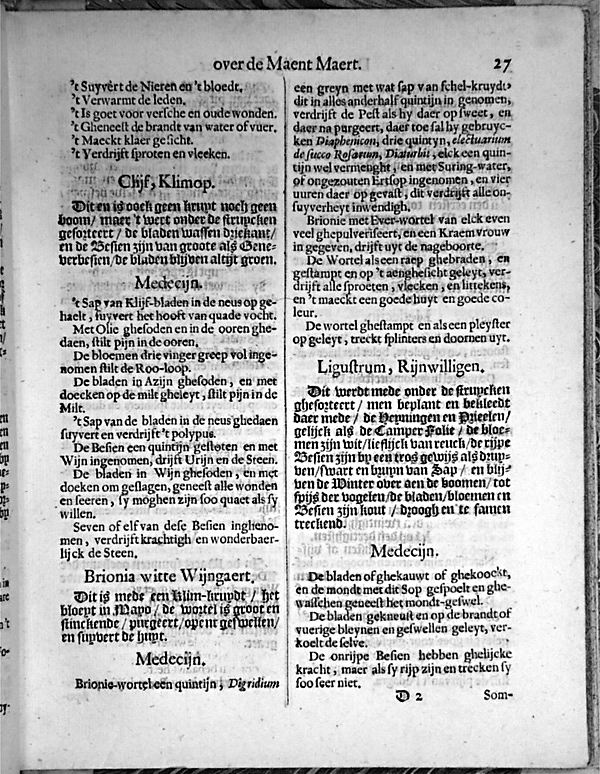 over de Maent Maert. 27
't Suyvert de Nieren en 't bloedt.
't Verwarmt de leden.
't Is goet voor versche en oude wonden.
't Gheneest de brandt van water of vuer.
't Maeckt klaer gesicht.
't Verdrijft sproten en vleeken.
Clijf, Klimop.
Dit en is oock geen kruyt noch geen
boom/ maer 't wert onder de struycken
gesorteert / de bladen wassen driekant/
en de Besien zijn van groote als Gene-
verbesien/ de bladen blijven altijt groen.
Medecijn.
't Sap van Klijf-bladen in de neus op ge-
haelt, suyvert het hooft van quade vocht.
Met Olie ghesoden en in de ooren ghe-
daen, stilt pijn in de ooren.
De bloemen drie vinger greep vol inge-
nomen stilt de Roo-loop.
De bladen in Azijn ghesoden, en met
doecken op de milt gheleyt, stilt pijn in de
Milt.
't Sap van de bladen in de neus ghedaen
suyvert en verdrijft 't polypus.
De Besien een quintijn gestoten en met
Wijn ingenomen, drijft Urijn en de Steen.
De bladen in Wijn ghesoden, en met
doeken om geslagen, geneest alle wonden
en seeren, sy moghen zijn soo quaet als sy
willen.
Seven of elf van dese Besien ingheno-
men, verdrijft krachtigh en wonderbaer-
lijck de Steen.
Brionia witte Wijngaert.
Dit is mede een klim-kruydt / het
bloept in Mayo / de wortel is groot en
stinckende / purgeert / opent geswellen/
en suyvert de huyt.
Medecijn.
Brionie-wortel een quintijn, Digridium
een greyn met wat sap van schel-kruydt,
dit in alles anderhalf quintijn in genomen,
verdrijft de Pest als hy daer op sweet, en
daer na purgeert, daer toe sal hy gebruyc-
ken Diaphenicon, drie quintyn, electuarium
de succo Rosarum, Diaturbit, elck een quin-
tijn wel vermenght, en met Suring-water,
of ongezouten Ertsop ingenomen, en vier
uuren daer op gevast, dit verdrijft alle on-
suyverheyt inwendigh.
Brionie met Ever-wortel van elck even
veel ghepulveriseert, en een Kraem vrouw
in gegeven, drijft uyt de nageboorte.
De Wortel als een raep ghebraden, en
gestampt en op 't aenghesicht geleyt, ver-
drijft alle sproeten, vlecken, en litteekens,
en 't maeckt een goede huyt en goede co-
leur.
De wortel ghestampt en als een pleyster
op geleyt, treckt splinters en doornen uyt.
Ligustrum, Rijnwilligen.
Dit werdt mede onder de struycken
ghesorteert / men beplant en bekleedt
daer mede / de Heyningen en Prieelen/
gelijck als de Camper Folie / de bloe-
men zijn wit/ lieflijck van reuck/ de rijpe
Besien zijn by een tros gewijs als druy-
ven/ swart en bruyn van Sap / en blij-
ven de Winter over aen de boomen/ tot
spijs der vogelen/ de bladen/ bloemen en
Besien zijn kout / droogh en te samen
treckend.
Medecijn.
De bladen of ghekauwt of ghekoockt,
en de mondt met dit Sop gespoelt en ghe-
wasschen geneest het mondt-geswel.
De bladen gekneust en op de brandt of
vuerige bleynen en geswellen geleyt, ver-
koelt de selve.
De onrijpe Besien hebben ghelijcke
kracht, maer als sy rijp zijn en trecken sy
soo seer niet.
D 2 Som-